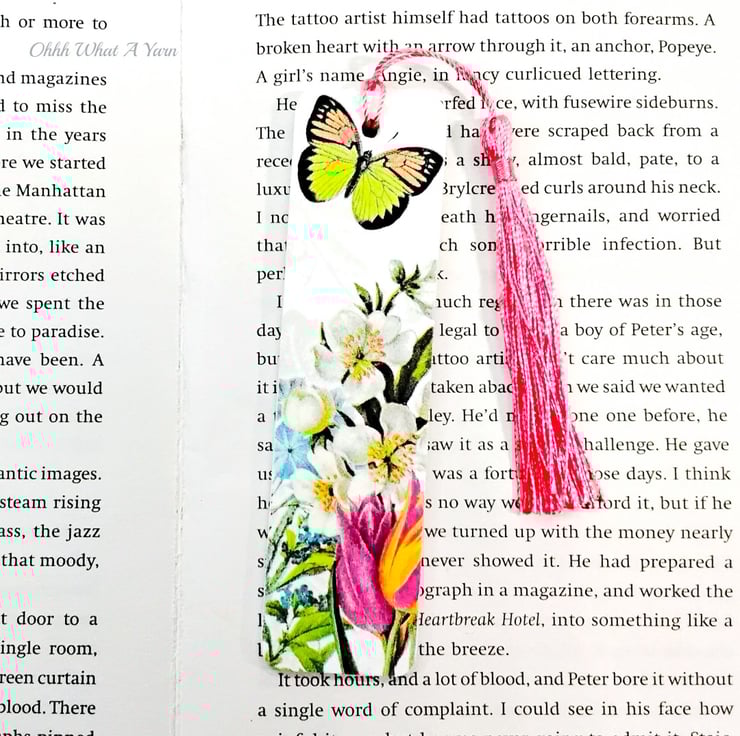 h or more to
Ohhh What A Yarn
nd magazines
d to miss the
in the years
re we started
e Manhattan
neatre. It was
into, like an
irrors etched
we spent the
e to paradise.
nave been. A
out we would
g out on the
antic images.
steam rising
ass, the jazz
that moody,
t door to a
ingle room,
reen curtain
blood. There
The tattoo artist himself had tattoos on both forearms. A
broken heart with an arrow through it, an anchor, Popeye.
A girl's name, Angie, in fancy curlicued lettering.
He rfed ce, with fusewire sideburns.
The d ha ere scraped back from a
rece s a sh y, almost bald, pate, to a
luxu Brylcre ed curls around his neck.
I no eath h ngernails, and worried
tha ch son orrible infection. But
per k.
I much reg n there was in those
day legal to a boy of Peter's age,
bu attoo arti 't care much about
it i taken abac n we said we wanted
a t ley. He'd n one one before, he
sa saw it as a challenge. He gave
us was a fort ose days. I think
h s no way we afford it, but if he
w we turned up with the money nearly
s never showed it. He had prepared a
s ograph in a magazine, and worked the
l Heartbreak Hotel, into something like a
l the breeze.
It took hours, and a lot of blood, and Peter bore it without
a single word of complaint. I could see in his face how